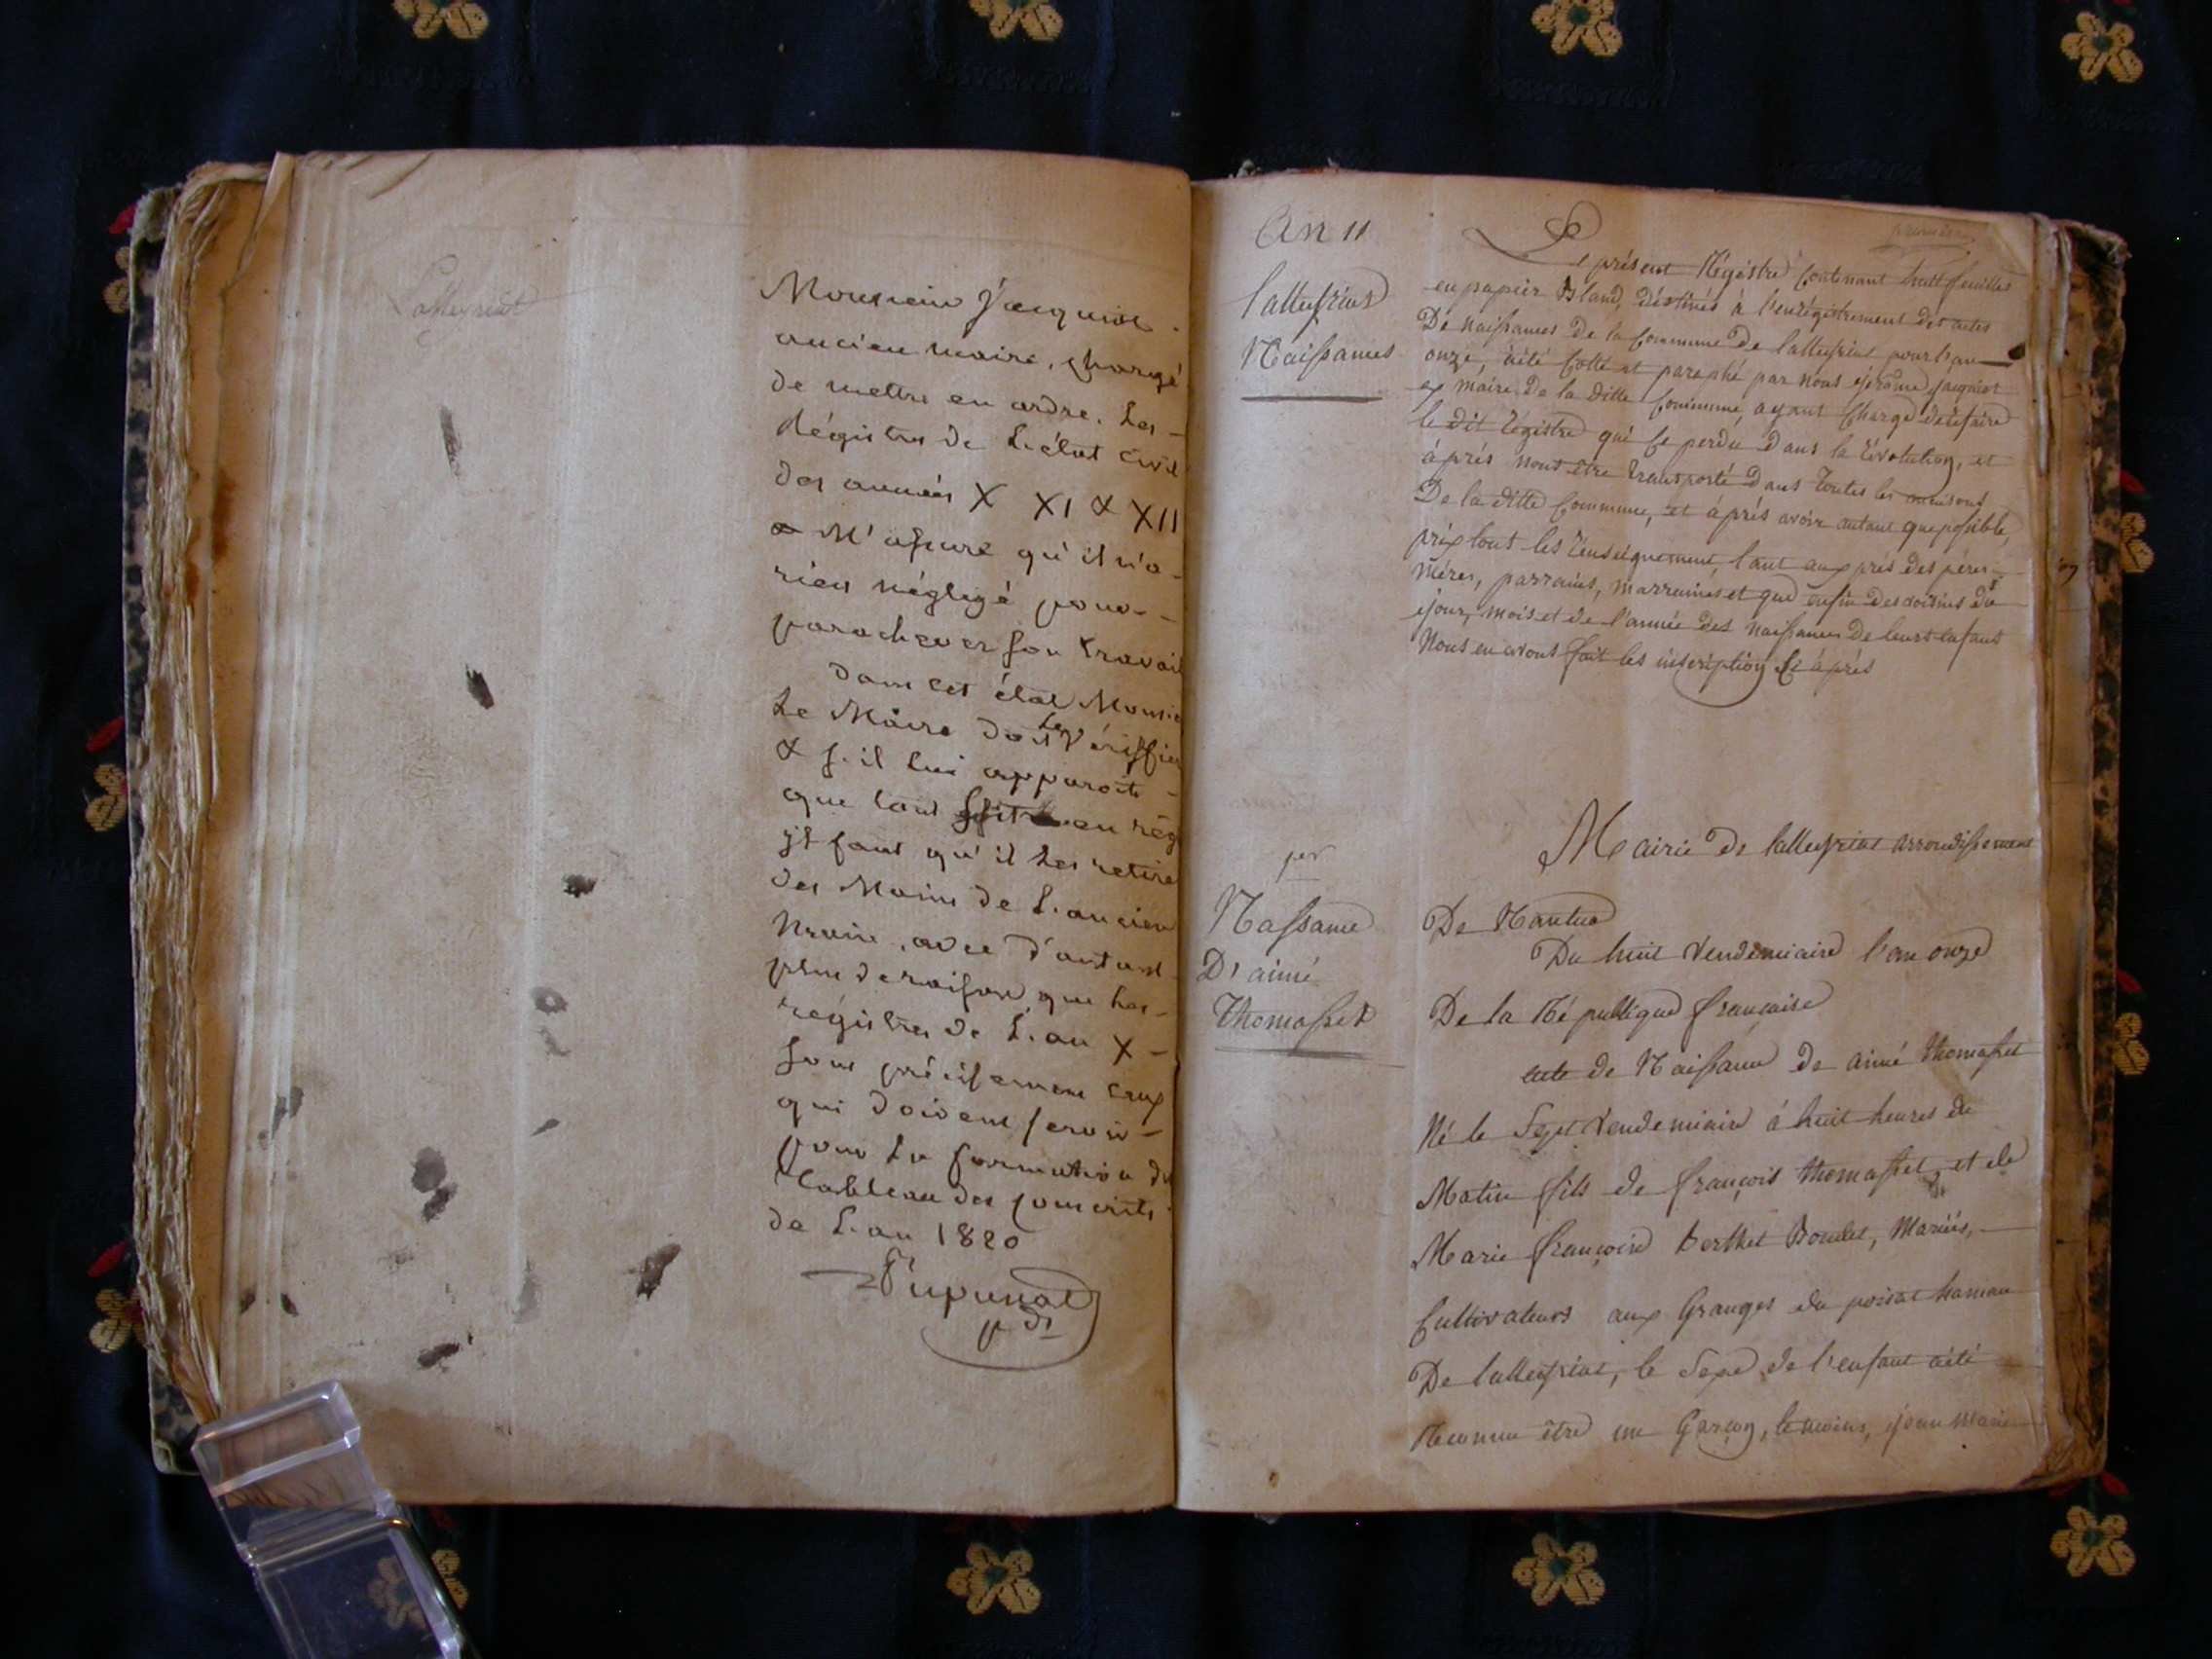 Lalleyriat
Monsieur Jacquiot
ancien maire, chargé
de mettre en ordre. Les
Régistres de L'état civil
des années X XI & XII
M'assure qu'il n'a
rien négligé pour
parachever son travail
dans cet état Monsie
Le Maire doit les vériffier
& s'il lui apparoît
que tout soit en règ
il faut qu'il les retire
des Mains de L'ancien
Maire, avec d'autant
plus de raison, que les
régistres de L'an X
sont précisément ceux
qui doivent servir
pour La formation du
Tableau des conscrits
de L'an 1820
An 11
Lalleyriat
Naissances
premier
Le présent Régistre contenant huit feuilles
en papier Bland, déstinés à l'enrégistrement des actes
De naissances de la commune de lalleyriat pour l'an
onze, àété cotté et paraphé par nous jérôme jacquiot
ex maire De la ditte commune, ayant chargé de réfaire
le dit régistre qui se perdu Dans la révolution, et
àprés nous être transporté Dans toutes les maisons
De la ditte commune, et àprés avoir autant que possible,
prix tout les renseignement, tant aux prés des péres
méres, parrains, marraines et que enfin des voisins du
jour, mois et de l'année des naissances De leurs enfant
Nous en avons fait les inscription ci àprés
Mairie De lalleyriat arrondissement
De Nantua
Du huit vendemiaire l'an onze
De la République française
1er
Nassance
D'aimé
Thomasset
acte de Naissance de aimé thomasset
Né le Sept vendemiaire à huit heures du
Matin fils de françois thomasset, et de
Marie françoise berthet Bondet, Mariés,
Cultivateurs aux Granges du poizat hameau
De lalleyriat, le Sexe de l'enfant àété
Reconnu être un Garçon, temoins, jean marie